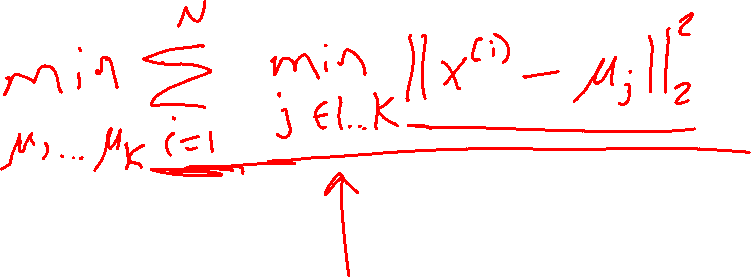 min_{μ_1...μ_K} ∑_{i=1}^{N} min_{j∈1..K} ||x^{(i)} - μ_j||_2^2